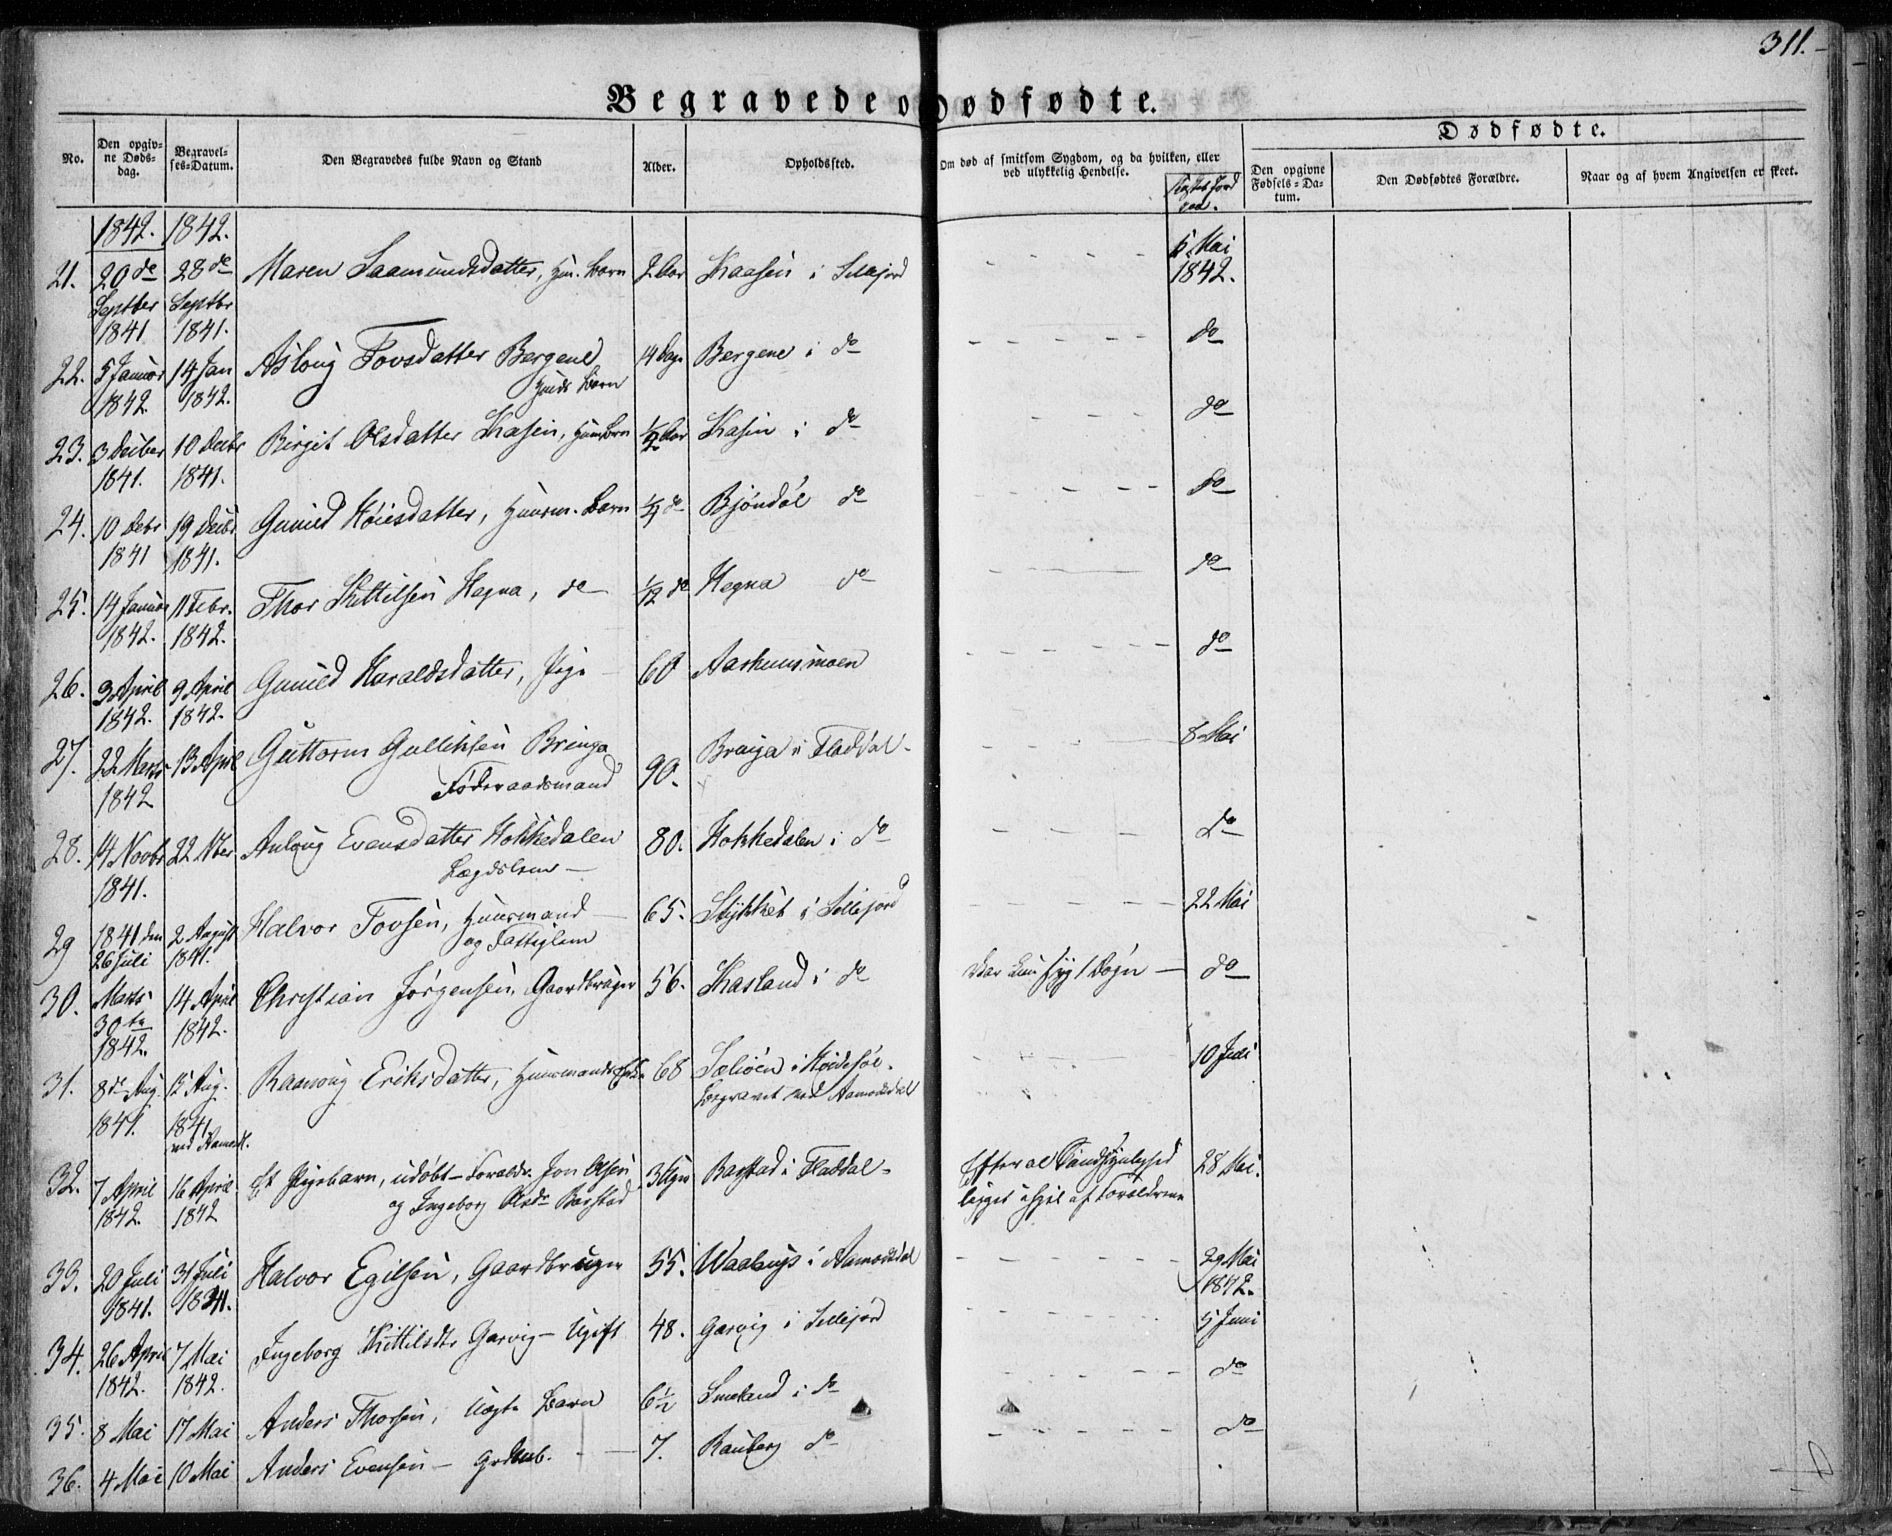 311.
Begravede o Dødfødte.
No.
Den opgiv-
ne Døds-
dag.
Begravel-
ses-Datum.
Den Begravedes fulde Navn og Stand
Alder.
Opholdssted.
Om død af smitsom Sygdom, og da hvilken, eller
ved ulykkelig Hendelse.
Dødfødte.
Den opgivne
Fødsels-Da-
tum.
Den Dødfødtes Forældre.
Naar og af hvem Angivelsen er skeet.
1842. 1842.
21. 20de Septber 1841 28de Septbr 1841. Maren Saamundsdatter, Hus. Barn 2 Aar Kaasen i Sillejord 5 Mai 1842.
22. 5 Januar 1842. 14 Jan 1842. Aslaug Tovsdatter Bergene Huusm Barn 14 Dage Bergene i do do
23. 3 Decber 1841. 10 Decbr 1841. Birgit Olsdatter Kasen, Huus Barn 1/2 Aar Kasen i do do
24. 10 Debr 1841 19 Decbr 1841. Gunild Høiesdatter, Huusm. Barn 1/4 do Bjöndöl do do
25. 14 Januar 1842. 11 Febr. 1842. Thor Kittilsen Hegna, do 1/12 do Hegna do do
26. 3 April 1842. 9 April 1842. Gunild Haraldsdatter, Pige 60 Aarhuusmoen do
27. 22 Marts 1842 13 April Guttorm Gulliksen Bringa Føderaadsmand 90. Bringa i Flatdal 8 Mai
28. 14 Novbr 1841. 22 Nber Anlaug Evensdatter Hokkedalen Lægdslem 80. Hokkedalen i do do
29 1841 den 26 Juli 2 August 1841. Halvor Tovsen, Huusmand og Fattiglem 65. Stykket i Sillejord 22 Mai
30. Marts 30te 1842. 14 April 1842. Christian Jörgensen, Gaardbruger 56. Kasland i do Var kun syg 1 Døgn do
31. 8de Aug 1841. 15 Aug. 1841. ved Aamotsd. Raanoug Eriksdatter, Huusmands 68 i Høidesöe. Begravet ved Aamotsdal 10 Juli
32. 7 April 1842. 16 April 1842 Et Pigebarn, udöbt - Foraldr. Jon Olsen og Ingeborg Olsdr Barstad 3 Ugr Barstad i Flatdal Efter al Sandsynlighed ligget ihjel af Foreldrene 28 Mai.
33. 20 Juli 1841. 31 Juli 1841. Halvor Egilsen, Gaardbruger 55. i Aamotsdal 29 Mai 1842.
34. 26 April 1842. 7 Mai 1842. Ingeborg Kittilsdtr Garvig - Ugift 48. Garvig i Sillejord 5 Juni
35. 8 Mai 17 Mai Anders Thorsen, Uægte Barn 6 1/2 Smeland i do do
36. 4 Mai 10 Mai Anders Evensen - Grdmb. 7. Rauberg do do